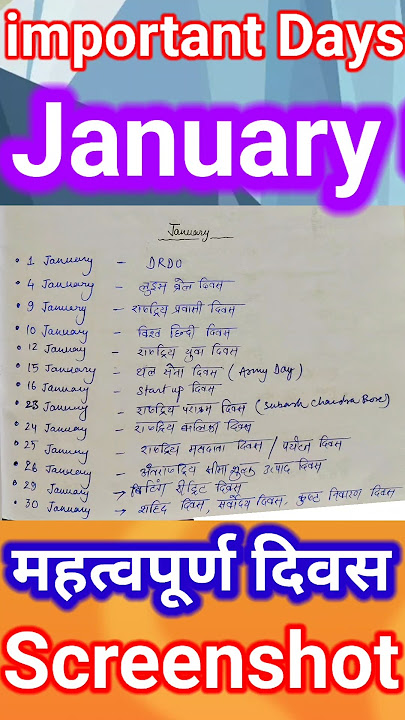 important Days
January
January
• 1 January - DRDO
• 4 January - लुइस ब्रेल दिवस
• 9 January - राष्ट्रिय प्रवासी दिवस
• 10 January - विश्व हिन्दी दिवस
• 12 January - राष्ट्रिय युवा दिवस
• 15 January - थल सेना दिवस (Army Day)
• 16 January - Start up दिवस
• 23 January - राष्ट्रिय पराक्रम दिवस (Subash Chandra Bose)
• 24 January - राष्ट्रिय बालिका दिवस
• 25 January - राष्ट्रिय मतदाता दिवस / पर्यटन दिवस
• 26 January - अंतराष्ट्रिय सीमा शुल्क उत्पाद दिवस
• 29 January → बिटिंग रीट्रिट दिवस
• 30 January - शहिद दिवस, सर्वोदय दिवस, कुष्ट निवारण दिवस
महत्वपूर्ण दिवस
Screenshot